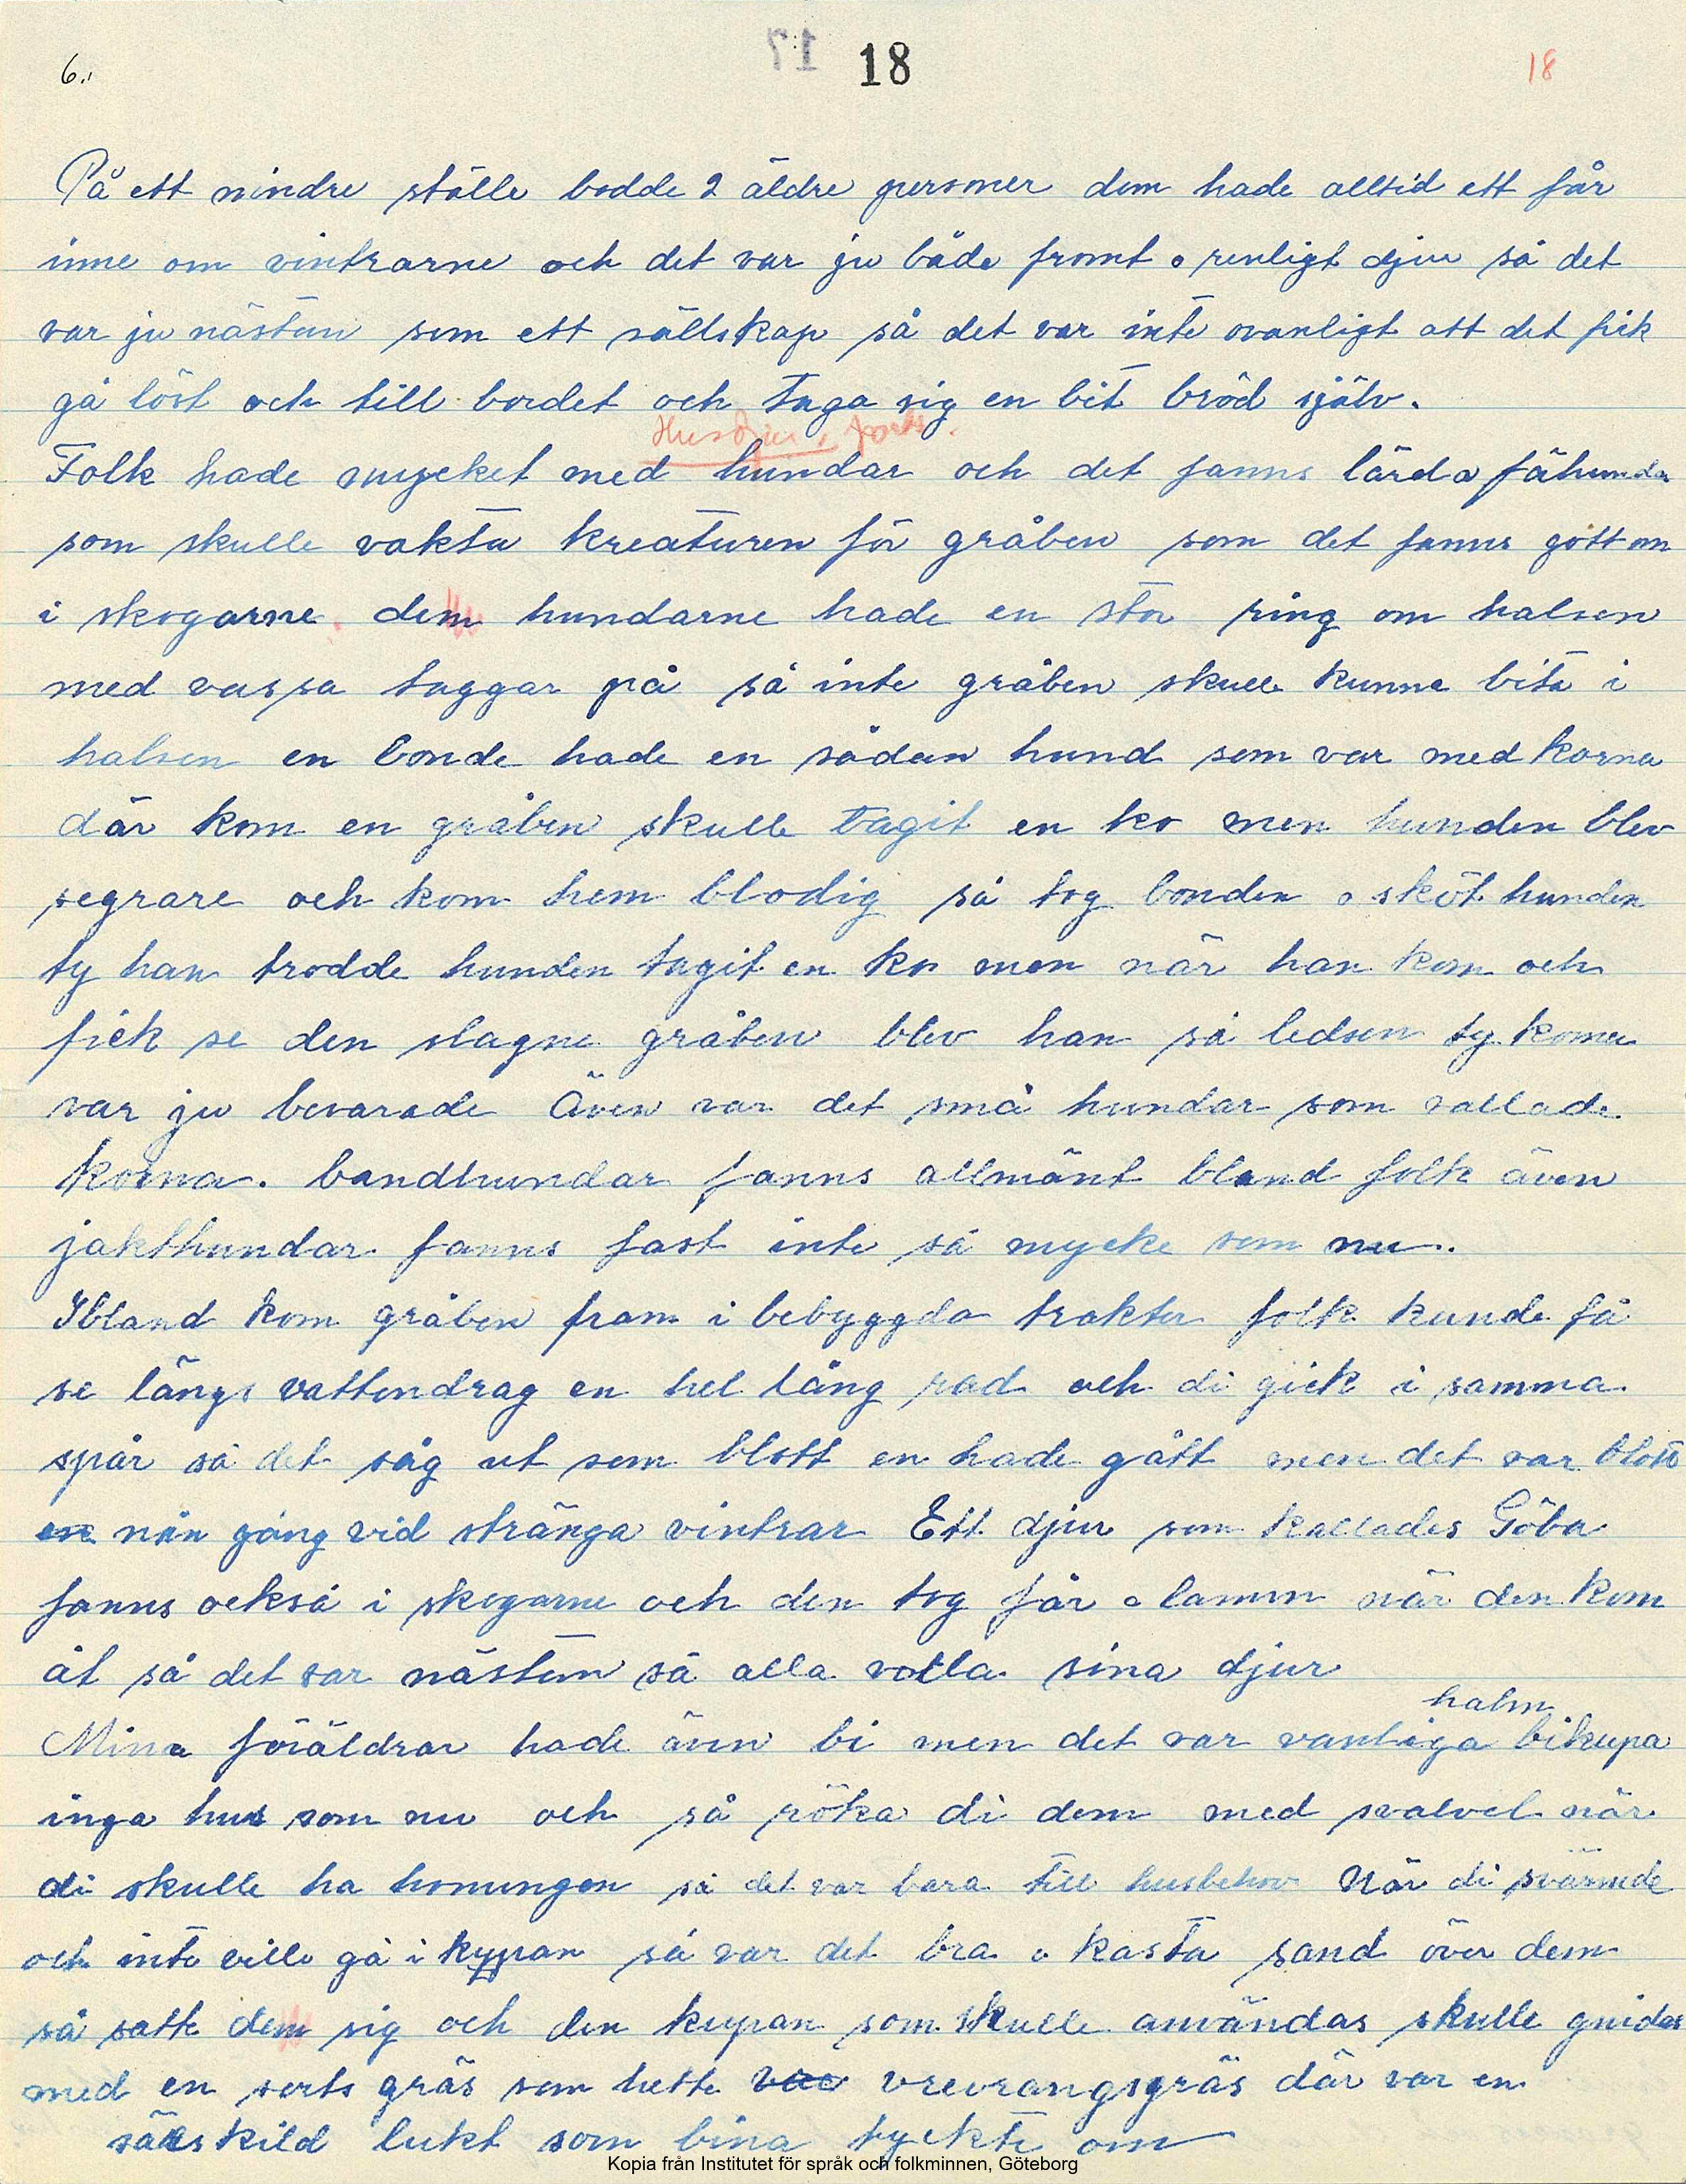 6.
17 18
18
På ett mindre ställe bodde 2 äldre personer dom hade alltid ett får
inne om vintrarne och det var ju både fromt o renligt djur så det
var ju nästan som ett sällskap så det var inte ovanligt att det fick
gå löst och till bordet och taga sig en bit bröd själv.
Husdjur, forts.
Folk hade mycket med hundar och det fanns lärda fähundar
som skulle vakta kreaturen för gråben som det fanns gott om
i skogarne dem hundarne hade en stor ring om halsen
med vassa taggar på så inte gråben skulle kunna bita i
halsen en bonde hade en sådan hund som var med korna
där kom en gråben skulle tagit en ko men hunden blev
segrare och kom hem blodig så tog bonden o sköt hunden
ty han trodde hunden tagit en ko men när han kom och
fick se den slagne gråben blev han så ledsen ty korna
var ju bevarade Även var det små hundar som vallade
korna. bandhundar fanns allmänt bland folk även
jakthundar fanns fast inte så mycke som nu.
Ibland kom gråben fram i bebyggda trakter folk kunde få
se längs vattendrag en hel lång rad och di gick i samma
spår så det såg ut som blott en hade gått men det var blott
en nån gång vid stränga vintrar Ett djur som kallades Göba
fanns också i skogarne och den tog får o lamm när den kom
åt så det var nästan så alla valla sina djur
halm
Mina föräldrar hade även bi men det var vanliga bikupa
inga hus som nu och så röka di dem med svavel när
di skulle ha honungen så det var bara till husbehov När di svärmde
och inte ville gå i kypan så var det bra o kasta sand över dem
så satte dem sig och den kupan som skulle användas skulle gnidas
med en sorts gräs som hette vrevrangsgräs där var en
särskild lukt som bina tyckte om
Kopia från Institutet för språk och folkminnen, Göteborg